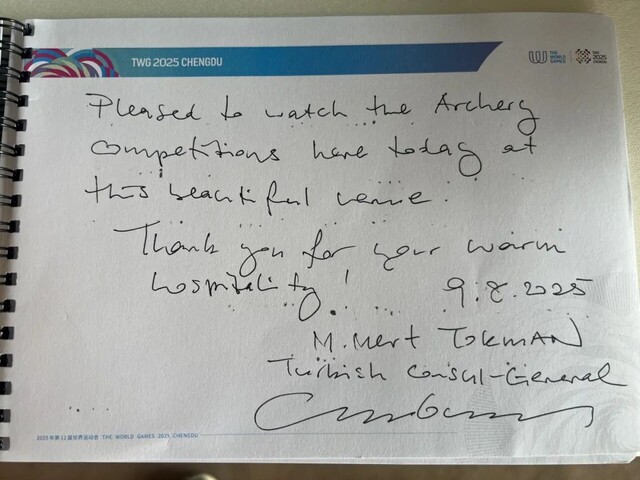 TWG 2025 CHENGDU
THE WORLD GAMES
TWG 2025 CHENGDU
Pleased to watch the Archery
Competitions here today at
this beautiful venue.
Thank you for your warm
hospitality!
9.8.2025
M. Mert TOKMAN
Turkish Consul-General
2025年第12届世界运动会 THE WORLD GAMES 2025, CHENGDU